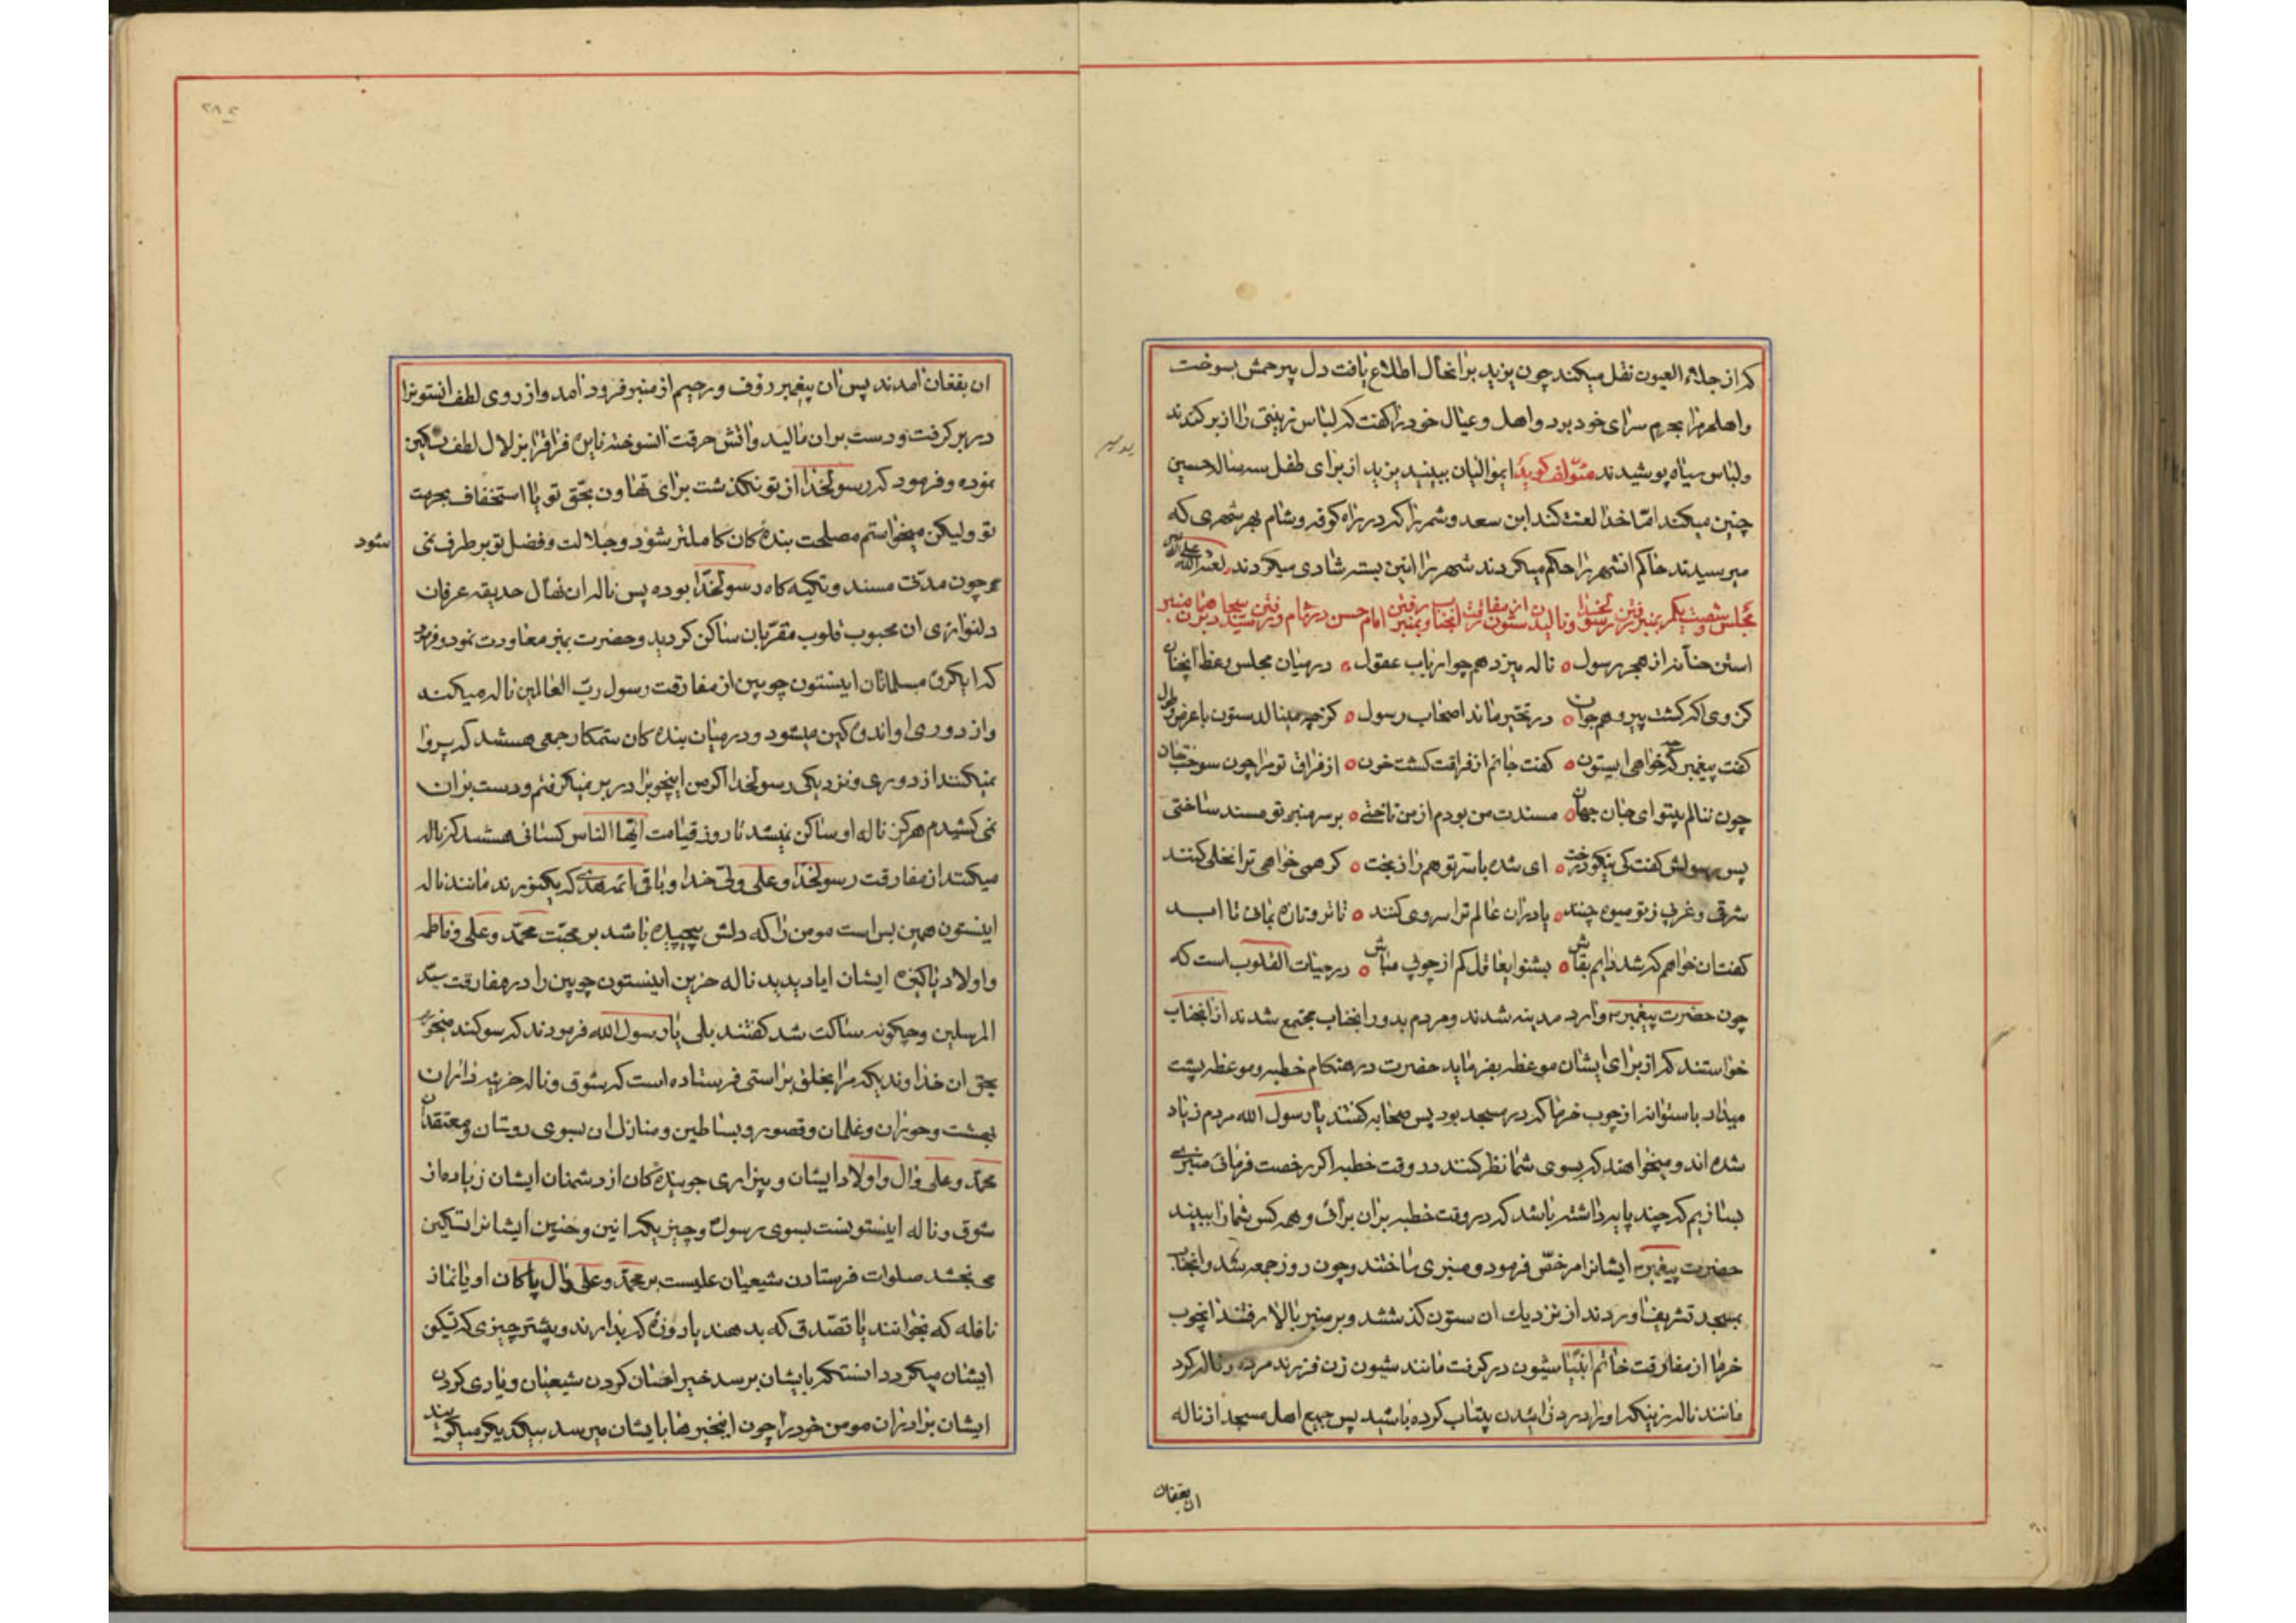 که از جلاء العیون نقل میکند چون یزید بر انحال اطلاع یافت دل بیرحمش بسوخت
واهلحرم را بحرم سرای خود برد واهل وعیال خود را گفت که لباس زینتی را از بر کندند
ولباس سیاه پوشیدند مؤلف کوید ایموالیان ببینید یزید از برای طفل سه ساله حسین
چنین میکند اما خدا لعنت کند ابن سعد وشمر را که در راه کوفه وشام بهر شهری که
میرسیدند حاکم انشهر را حکم میکردند شهر را ائین بسته شادی میکردند لعنة الله علی
مجلس شصت ویکم بمنبر رفتن رسولخدا ونالیدن ستون از مفارقت انجناب وبمنبر رفتن امام حسن در شام ورفتن سید سجاد بمنبر
استن حنانه از هجر رسول ناله میزد همچو ارباب عقول در میان مجلس وعظ انچنان
کز وی اگه گشت پیر وهم جوان در تحیر ماند اصحاب رسول کز چه مینالد ستون با عرض وطول
گفت پیغمبر چه خواهی ایستون گفت جانم از فراقت گشت خون از فراق تو مرا چون سوخت جان
چون ننالم بیتو ای جان جهان مسندت من بودم از من تاختی بر سر منبر تو مسند ساختی
پس رسولش گفت کی نیکو درخت ای شده با سر تو همراز بخت گر همی خواهی ترا نخلی کنند
شرقی وغربی ز تو میوه چنند یا دران عالم ترا سروی کنند تا تر وتازه بمانی تا ابد
گفت ان خواهم که شد دایم بقاش بشنو ایغافل کم از چوبی مباش در حیات القلوب است که
چون حضرت پیغمبر وارد مدینه شدند ومردم بدور انجناب مجتمع شدند از انجناب
خواستند که از برای ایشان موعظه بفرماید حضرت در هنکام خطبه وموعظه پشت
میداد باستوانه از چوب خرما که در مسجد بود پس صحابه گفتند یا رسول الله مردم زیاد
شده اند ومیخواهند که بسوی شما نظر کنند در وقت خطبه اکر رخصت فرمائی منبری
بسازیم که چند پایه داشته باشد که در وقت خطبه بران برائی وهمه کس شما را ببیند
حضرت پیغمبر ایشانرا مرخص فرمود ومنبری ساختند وچون روز جمعه شد وانجناب
بمسجد تشریف اوردند از نزدیک ان ستون گذشتند وبر منبر بالا رفتند انچوب
خرما از مفارقت خاتم انبیا شیون در گرفت مانند شیون زن فرزند مرده وناله کرد
مانند ناله زنیکه او را درد زائیدن بیتاب کرده باشد پس جمیع اهل مسجد از ناله
ان بفغان
ان بفغان امدند پس ان پیغمبر رؤف ورحیم از منبر فرود امد واز روی لطف انستونرا
در بر گرفت ودست بران مالید واتش حرقت انسوخته نایره فراقرا بزلال لطف تسکین
نموده وفرمود که رسولخدا از تو نکذشت برای تهاون بحق تو یا استخفاف بحرمت
تو ولیکن میخواستم مصلحت بنده کان کاملتر شود وجلالت وفضل تو بر طرف نمی
شود
چون مدتی مسند وتکیه کاه رسولخدا بوده پس ناله ان نهال حدیقه عرفان
دلنوازی ان محبوب قلوب مقربان ساکن کردید وحضرت بمنبر معاودت نمود وفرمود
که ایکروه مسلمانان اینستون چوبین از مفارقت رسول رب العالمین ناله میکند
واز دوری او اندوهکین میشود ودر میان بنده کان ستمکار جمعی هستند که پروا
نمیکنند از دوری ونزدیکی رسولخدا اکر من اینچوبرا در بر نمیکرفتم ودست بران
نمی کشیدم هرکز ناله او ساکن نمیشد تا روز قیامت ایها الناس کسانی هستند که ناله
میکنند از مفارقت رسولخدا وعلی ولی خدا وباقی ائمه هدی که یکنفرند مانند ناله
اینستون همین بس است مومن را که دلش پیچیده باشد بر محبت محمد وعلی وفاطمه
واولاد پاکیزه ایشان ایا دیدید ناله حزین اینستون چوبین را در مفارقت سید
المرسلین وچکونه ساکت شد گفتند بلی یا رسول الله فرمودند که سوکند میخورم
بحق ان خداوندیکه مرا بخلق براستی فرستاده است که شوق وناله خزینه داران
بهشت وحوران وغلمان وقصور وبساطین ومنازل ان بسوی دوستان ومعتقدان
محمد وعلی وال واولاد ایشان وبیزاری جوینده کان از دشمنان ایشان زیاده از
شوق وناله اینستونست بسوی رسول وچیزیکه انین وحنین ایشانرا تسکین
می بخشد صلوات فرستادن شیعیان علیست بر محمد وعلی وال پاکان او یا نماز
نافله که بخوانند یا تصدق که بدهند یا روزه که بدارند وبیشتر چیزی که تسکین
ایشان میکردد انستکه بایشان برسد خبر احسان کردن شیعیان ویاری کردن
ایشان برادران مومن خود را چون اینخبرها بایشان میرسد بیکدیکر میکویند